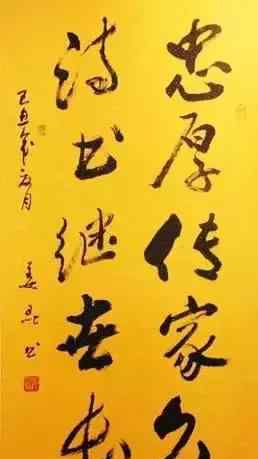 忠厚传家久
诗书继世长
己丑年六月
姜昆书